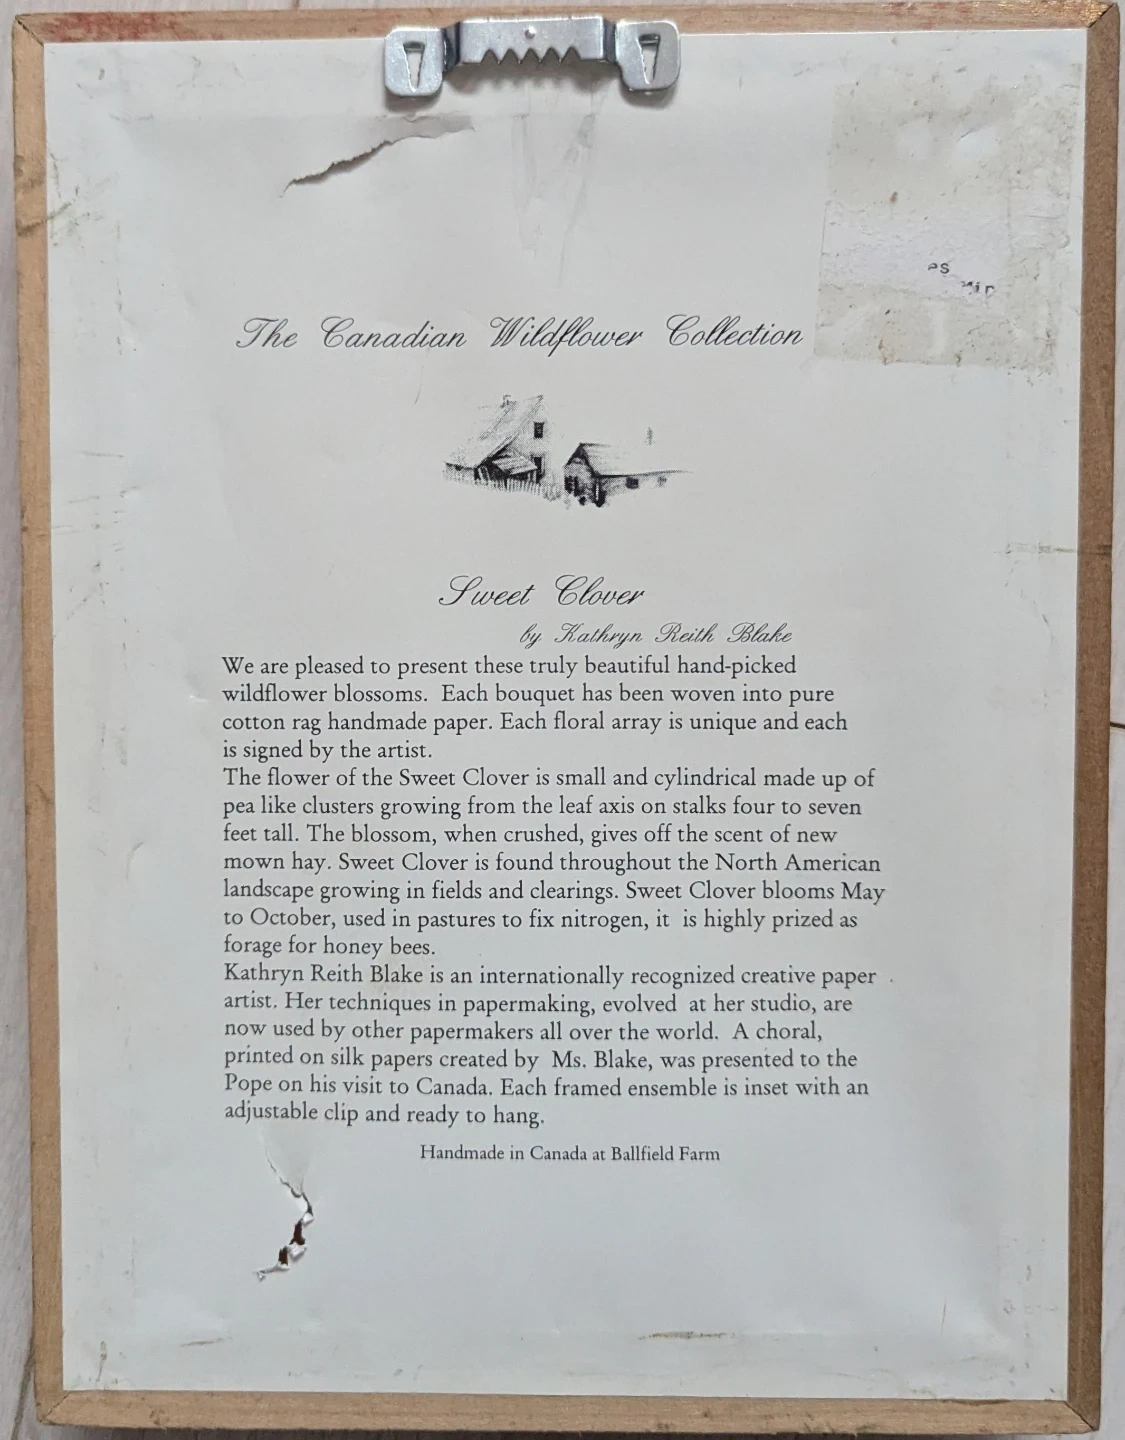 The Canadian Wildflower Collection
Sweet Clover
by Kathryn Reith Blake
We are pleased to present these truly beautiful hand-picked
wildflower blossoms.  Each bouquet has been woven into pure
cotton rag handmade paper. Each floral array is unique and each
is signed by the artist.
The flower of the Sweet Clover is small and cylindrical made up of
pea like clusters growing from the leaf axis on stalks four to seven
feet tall. The blossom, when crushed, gives off the scent of new
mown hay. Sweet Clover is found throughout the North American
landscape growing in fields and clearings. Sweet Clover blooms May
to October, used in pastures to fix nitrogen, it  is highly prized as
forage for honey bees.
Kathryn Reith Blake is an internationally recognized creative paper
artist. Her techniques in papermaking, evolved  at her studio, are
now used by other papermakers all over the world.  A choral,
printed on silk papers created by  Ms. Blake, was presented to the
Pope on his visit to Canada. Each framed ensemble is inset with an
adjustable clip and ready to hang.
Handmade in Canada at Ballfield Farm